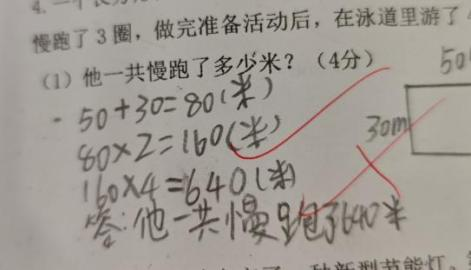 4. 一个长方形
慢跑了3圈，做完准备活动后，在泳道里游了
（1）他一共慢跑了多少米？（4分）
50+30=80(米)
80×2=160(米)
160×4=640(米)
答:他一共慢跑了640米
50
30m
一种新型节能灯，